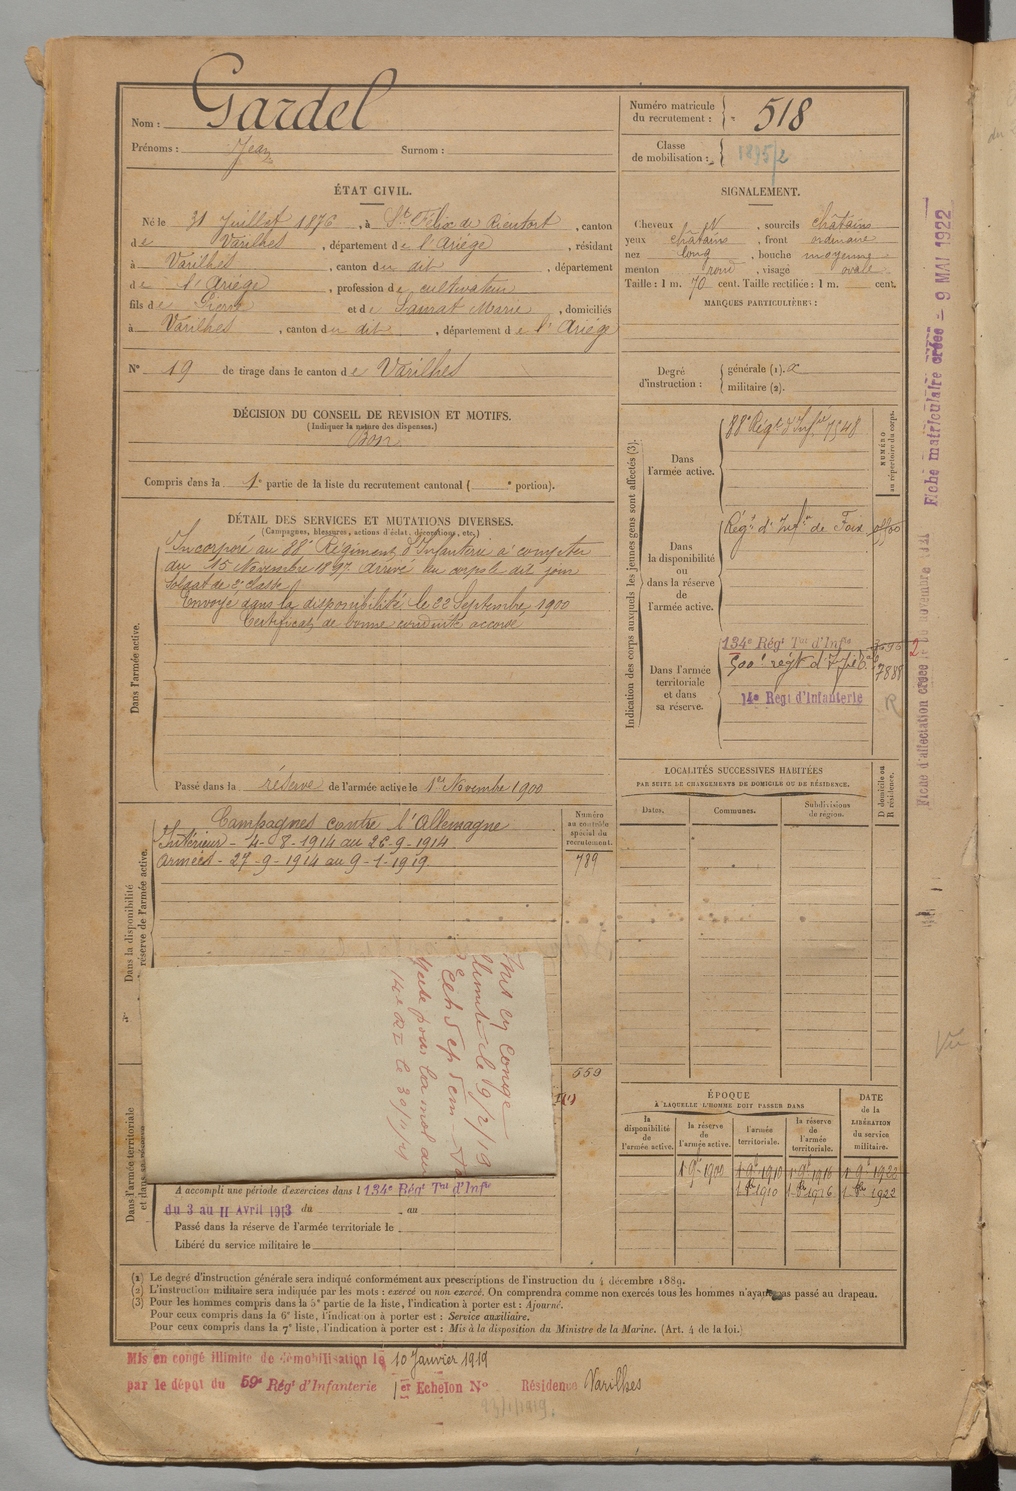 Nom : Gardel
Prénoms : Jean Surnom :
Numéro matricule du recrutement : 518
Classe de mobilisation : 1895/2
ÉTAT CIVIL.
Né le 31 Juillet 1876, à St Félix de Rieutort, canton
de Varilhes, département de l'Ariège, résidant
à Varilhes, canton du dit, département
de l'Ariège, profession de cultivateur
fils de Pierre et de Laurat Marie, domiciliés
à Varilhes, canton du dit, département de l'Ariège
N° 19 de tirage dans le canton de Varilhes
SIGNALEMENT.
Cheveux N, sourcils châtains
yeux châtains, front ordinaire
nez long, bouche moyenne
menton rond, visage ovale
Taille : 1 m. 70 cent. Taille rectifiée : 1 m. cent.
MARQUES PARTICULIÈRES :
Degré d'instruction : générale (1). 2
militaire (2).
DÉCISION DU CONSEIL DE REVISION ET MOTIFS.
(Indiquer la nature des dispenses.)
Bon
Compris dans la 1e partie de la liste du recrutement cantonal ( e portion).
DÉTAIL DES SERVICES ET MUTATIONS DIVERSES.
(Campagnes, blessures, actions d'éclat, décorations, etc.)
Dans l'armée active.
Incorporé au 88e Régiment d'Infanterie à compter
du 15 Novembre 1897. Arrivé au corps le dit jour
Soldat de 2e classe
Envoyé dans la disponibilité le 22 Septembre 1900
Certificat de bonne conduite accordé
Passé dans la réserve de l'armée active le 1er Novembre 1900
Indication des corps auxquels les jeunes gens sont affectés (3).
NUMÉRO au répertoire du corps.
Dans l'armée active.
88e Régt d'Infie 7548
Dans la disponibilité ou dans la réserve de l'armée active.
Régt d'Infie de Foix
Dans l'armée territoriale et dans sa réserve.
134e Régt Tial d'Infie
500e régt d'
7888
14e Régt d'Infanterie
R
Dans la disponibilité
réserve de l'armée active.
Campagnes contre l'Allemagne
Intérieur - 4-8-1914 au 26-9-1914
Armées - 27-9-1914 au 9-1-1919
Numéro au contrôle spécial du recrutement.
789
559
LOCALITÉS SUCCESSIVES HABITÉES
PAR SUITE DE CHANGEMENTS DE DOMICILE OU DE RÉSIDENCE.
Dates. Communes. Subdivisions de région. D domicile ou R résidence.
Dans l'armée territoriale
et dans sa réserve
A accompli une période d'exercices dans l 134e Régt Tial d'Infie
du 3 au 11 Avril 1913 du au
Passé dans la réserve de l'armée territoriale le
Libéré du service militaire le
ÉPOQUE
À LAQUELLE L'HOMME DOIT PASSER DANS
la disponibilité de l'armée active. la réserve de l'armée active. l'armée territoriale. la réserve de l'armée territoriale.
DATE de la LIBÉRATION du service militaire.
1 9e 1900 1 9e 1910 1 9e 1916 1 9e 1922
1 8e 1910 1 8e 1916 1 8e 1922
(1) Le degré d'instruction générale sera indiqué conformément aux prescriptions de l'instruction du 4 décembre 1889.
(2) L'instruction militaire sera indiquée par les mots : exercé ou non exercé. On comprendra comme non exercés tous les hommes n'ayant pas passé au drapeau.
(3) Pour les hommes compris dans la 5e partie de la liste, l'indication à porter est : Ajourné.
Pour ceux compris dans la 6e liste, l'indication à porter est : Service auxiliaire.
Pour ceux compris dans la 7e liste, l'indication à porter est : Mis à la disposition du Ministre de la Marine. (Art. 4 de la loi.)
Mis en congé illimité de démobilisation le 10 Janvier 1919
par le dépôt du 59e Régt d'Infanterie 1er Echelon N° Résidence Varilhes
23/1/1919.
Fiche matriculaire créée - 9 MAI 1922
Fiche d'affectation créée le novembre
Vu